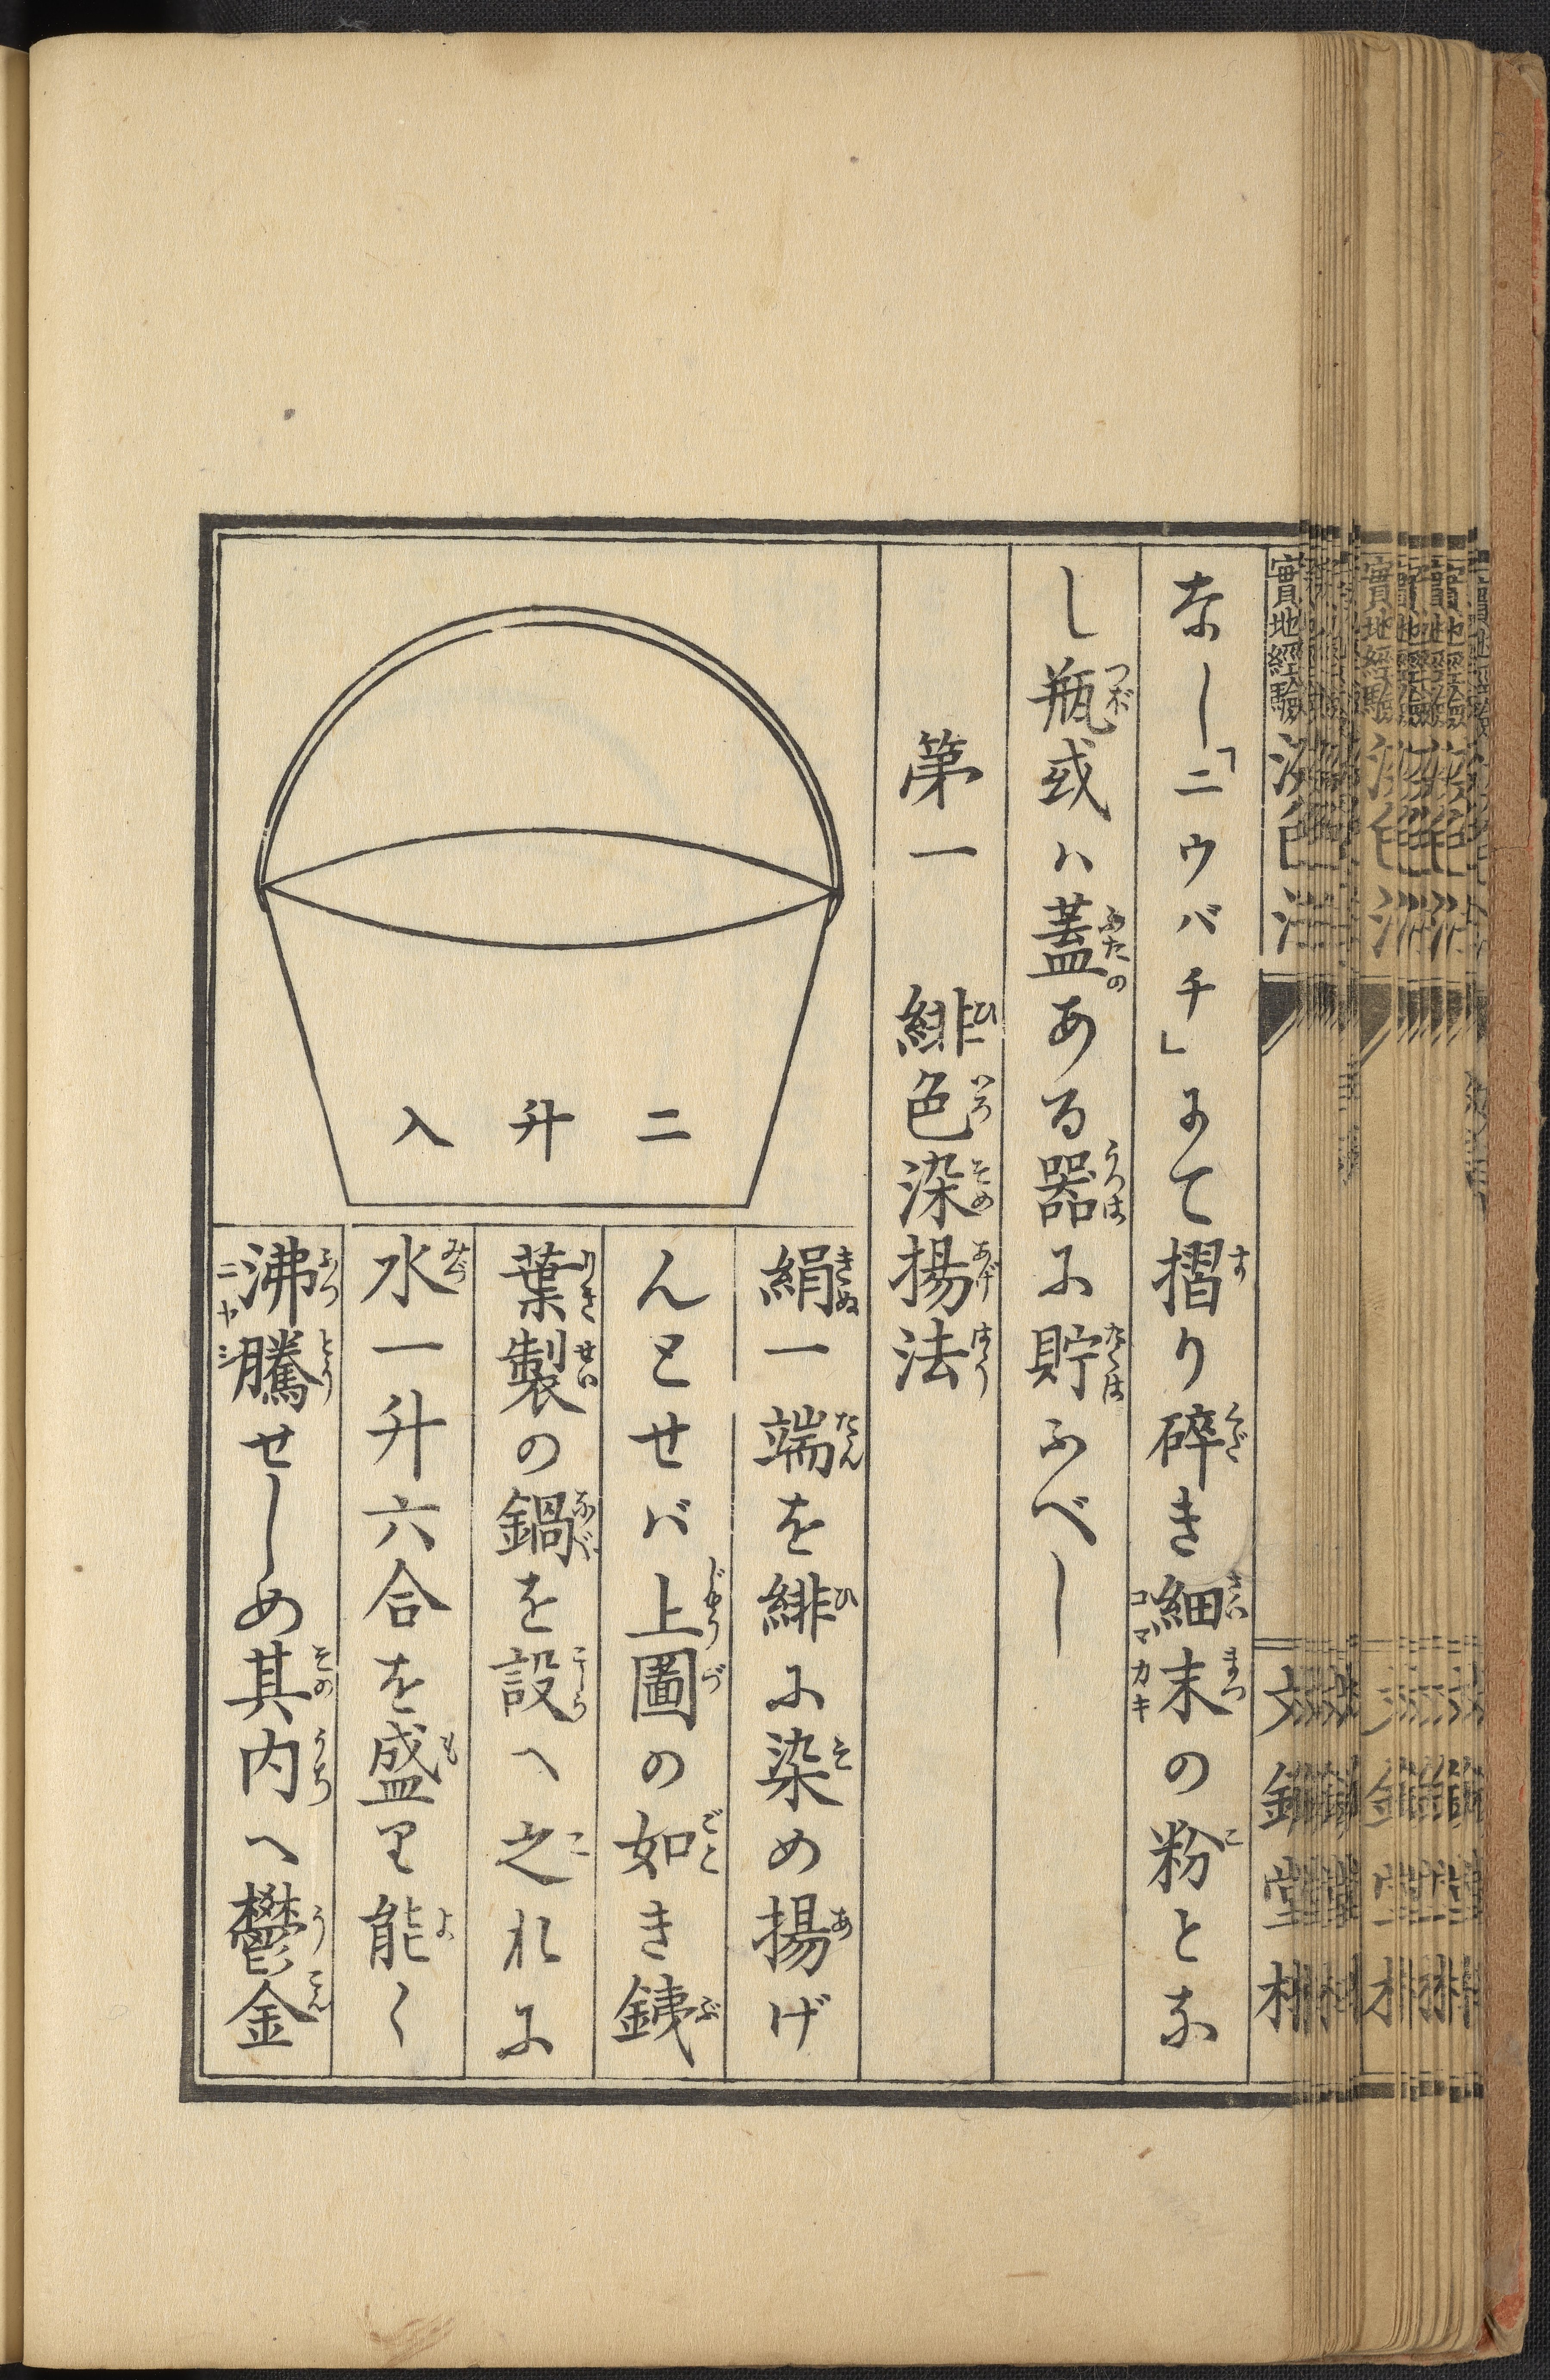 實地經驗染色法
文錦堂梓
なし「ニウバチ」にて摺り碎き細末の粉とな
し瓶或ハ蓋ある器に貯ふべし
第一　緋色染揚法
二升入
絹一端を緋に染め揚げ
んとせバ上圖の如き銕
葉製の鍋を設へ之れに
水一升六合を盛り能く
沸騰せしめ其内へ鬱金